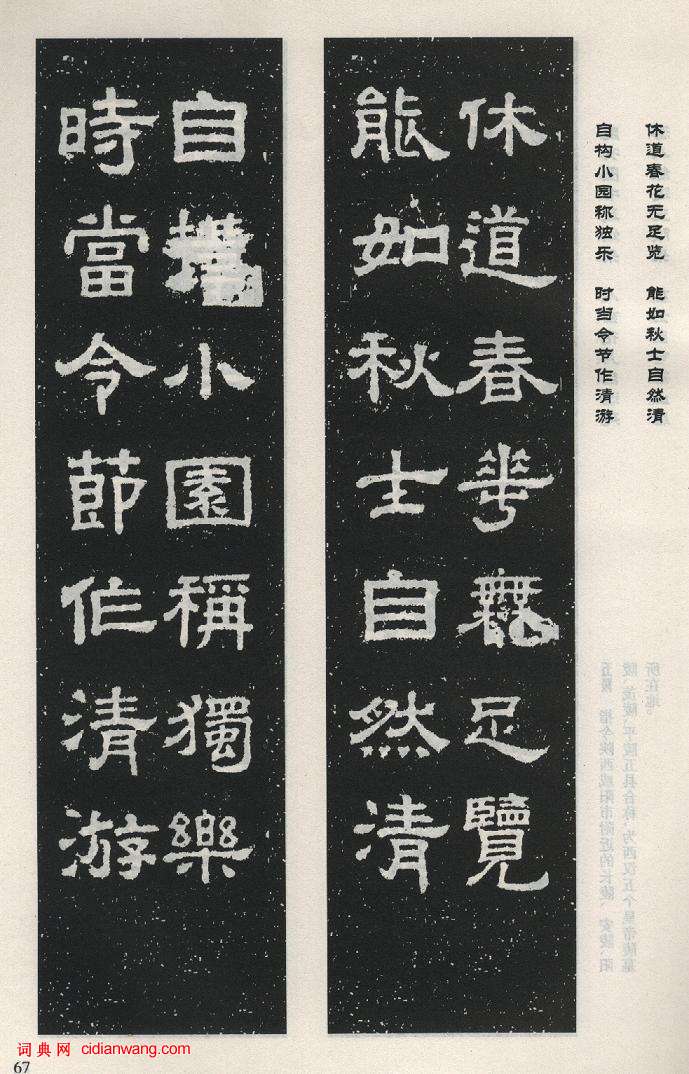 休道春花无足览 能如秋士自然清
自构小园称独乐 时当令节作清游
休道春華無足覽
能如秋士自然清
自構小園稱獨樂
時當令節作清游
词典网 cidianwang.com
67